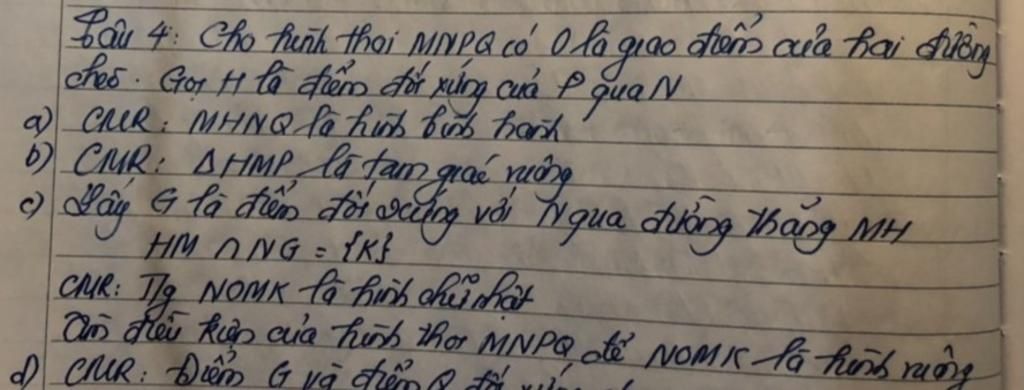 Câu 4: Cho hình thoi MNPQ có O là giao điểm của hai đường
chéo. Gọi H là điểm đối xứng của P qua N
a) CMR: MHNQ là hình bình hành
b) CMR: ΔHMP là tam giác vuông
c) Lấy G là điểm đối xứng với N qua đường thẳng MH
HM ∩ NG = {K}
CMR: T/g NOMK là hình chữ nhật
Tìm điều kiện của hình thoi MNPQ để NOMK là hình vuông
d) CMR: Điểm G và điểm Q đối xứng